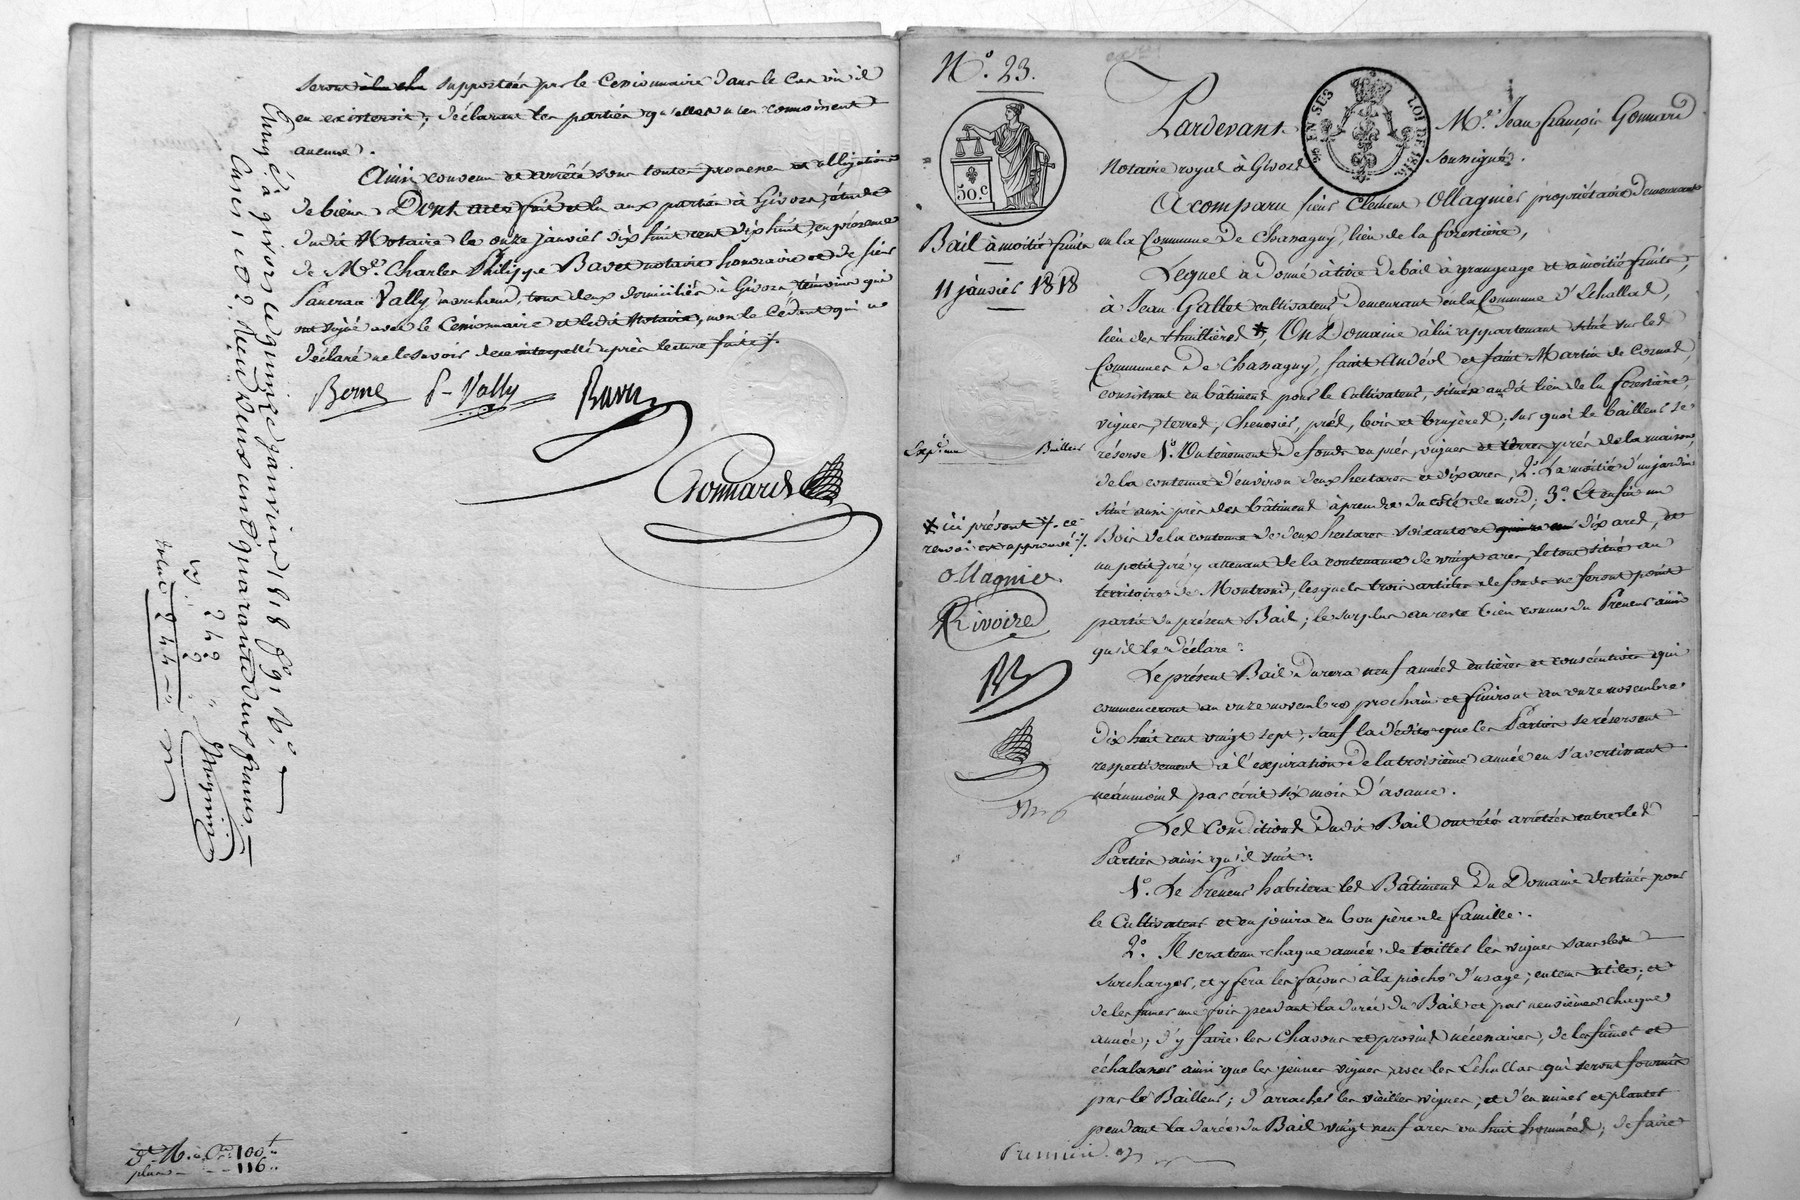 seront à la ch supportées par le Cessionnaire dans le cas où il
en existeroit; déclarant les parties qu'elles n'en connoissent
aucune.
Ainsi convenu et arrêté sous toutes promesses et obligations
de biens. Dont acte fait et lu aux parties à Givors, étude
dudit Notaire le onze janvier dix huit cent dix huit, en présence
de Mre. Charles Philippe Bavet notaire honoraire et de sieur
Pancrace Vally marchand, tous deux domiciliés à Givors, témoins qui
ont signé avec le Cessionnaire et ledit Notaire, non le Cédant qui a
déclaré ne le savoir de ce interpellé après lecture faite ./.
Berne P- Vally Bavet
Gonnard
Enreg.é à givors le quinze janvier 1818 f.
Reçu deux cent quarante deux francs
242
100
plus 116
N.° 23.
50.c
Bail à moitié fruits
11 janvier 1818
Exp. Bailleur
* ici présent ./. ce
renvoi est approuvé ./.
Ollagnier
Rivoire
Pardevant Me. Jean françois Gonnard
EN SUS LOI DE 1816.
Notaire royal à Givors soussigné.
A comparu sieur Clement Ollagnier propriétaire demeurant
en la Commune de Chassagny, lieu de la forestière,
Lequel a donné à titre de bail à grangeage et à moitié fruits,
à Jean Gallet cultivateur demeurant en la Commune d'Echallas,
lieu des thuillières *, Un Domaine à lui appartenant situé sur les
Communes de Chassagny, saint Andéol et saint Martin de Cornas,
consistant en bâtiment pour le Cultivateur, situés audit lieu de la forestière,
vignes, terres, chenevier, prés, bois et bruyères; sur quoi le bailleur se
réserve 1.° Un tènement de fonds en prés, vignes et terres près de la maison,
de la contenue d'environ deux hectares et dix ares, 2.° La moitié d'un jardin
situé aussi près des bâtiment à prendre du côté de nord; 3.° Et enfin un
Bois de la contenue de deux hectares soixante et dix ares, et
un petit pré y attenant de la contenance de vingt ares, le tout situé au
territoire de Montrond, lesquels trois articles de fonds ne feront point
partie du présent Bail; le surplus au reste bien connu du Preneur ainsi
qu'il le déclare.
Le présent Bail durera neuf années entières et consécutives qui
commenceront au onze novembre prochain et finiront au onze novembre
dix huit cent vingt sept, sauf la dédite que les Parties se réservent
respectivement à l'expiration de la troisième année en s'avertissant
néanmoins par écrit six mois d'avance.
Les conditions dudit Bail ont été arrêtées entre les
Parties ainsi qu'il suit:
1.° Le Preneur habitera les Bâtiment du Domaine destinés pour
le Cultivateur et en jouira en bon père de famille.
2.° Il sera tenu chaque année de tailler les vignes sans les
surcharger, et y fera les façons à la pioche d'usage, en tems utile; et
de les fumer une fois pendant la durée du Bail et par neuvièmes chaque
année; d'y faire les chavons et provins nécessaires, de les fumer et
échalasser ainsi que les jeunes vignes avec les Echallas qui seront fournis
par le Bailleur; d'arracher les vieilles vignes, et d'en miner et planter
pendant la durée du Bail vingt neuf ares ou huit hommées; de faire
Premier